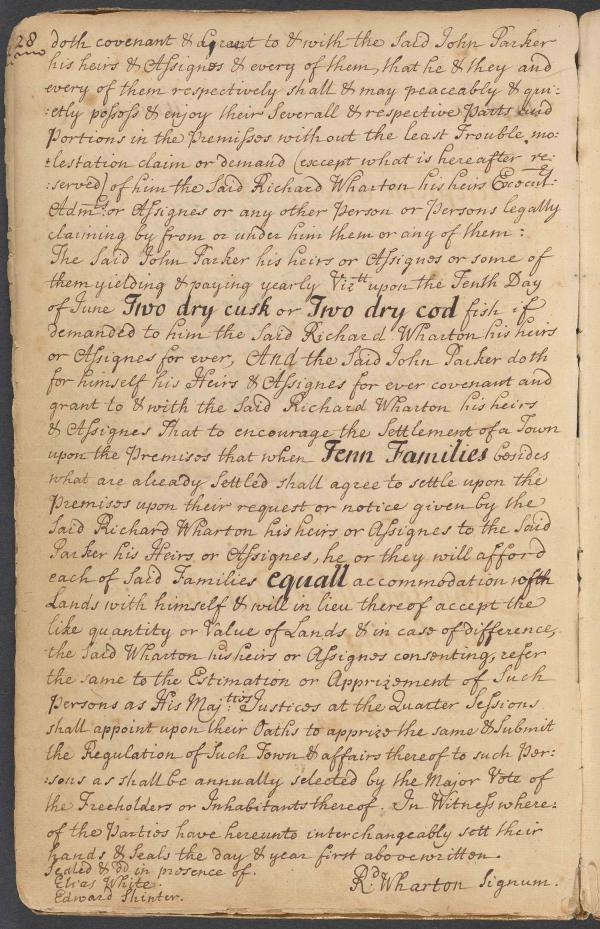 28
doth covenant & Agrant to & with the Said John Parker
his heirs & Assignes & every of them, that he & they and
every of them respectively shall & may peaceably & qui-
:etly possess & enjoy their Severall & respective Parts and
Portions in the Premisses without the least Trouble, mo:
:lestation claim or demand [except what is hereafter re-
:served] of him the Said Richard Wharton his heirs Execut:rs
Adm:rs or Assignes or any other Person or Persons legally
claiming by from or under him them or any of them:
The Said John Parker his heirs or Assignes or some of
them yielding & paying yearly Vizt upon the Tenth Day
of June Two dry cusk or Two dry cod fish if
demanded to him the Said Richard Wharton his heirs
or Assignes for ever, And the Said John Parker doth
for himself his Heirs & Assignes for ever covenant and
grant to & with the Said Richard Wharton his heirs
& Assignes That to encourage the Settlement of a Town
upon the Premises that when Tenn Families besides
what are already Settled shall agree to settle upon the
Premises upon their request or notice given by the
Said Richard Wharton his heirs or Assignes to the Said
Parker his Heirs or Assignes, he or they will afford
each of Said Families equall accommodation with
Lands with himself & will in lieu thereof accept the
like quantity or Value of Lands & in case of difference,
the Said Wharton his heirs or Assignes consenting, refer
the same to the Estimation or Apprizement of Such
Persons as His Maj:ties Justices at the Quarter Sessions
shall appoint upon their Oaths to apprize the same & Submit
the Regulation of Such Town & affairs thereof to such Per:
:sons as shall be annually selected by the Major Vote of
the Freeholders or Inhabitants thereof. In Witness where:
of the Parties have hereunto interchangeably sett their
hands & Seals the day & year first abovewritten.
Sealed & DD in presence of.
Elias White.
Rd. Wharton Signum.
Edward Shinter.